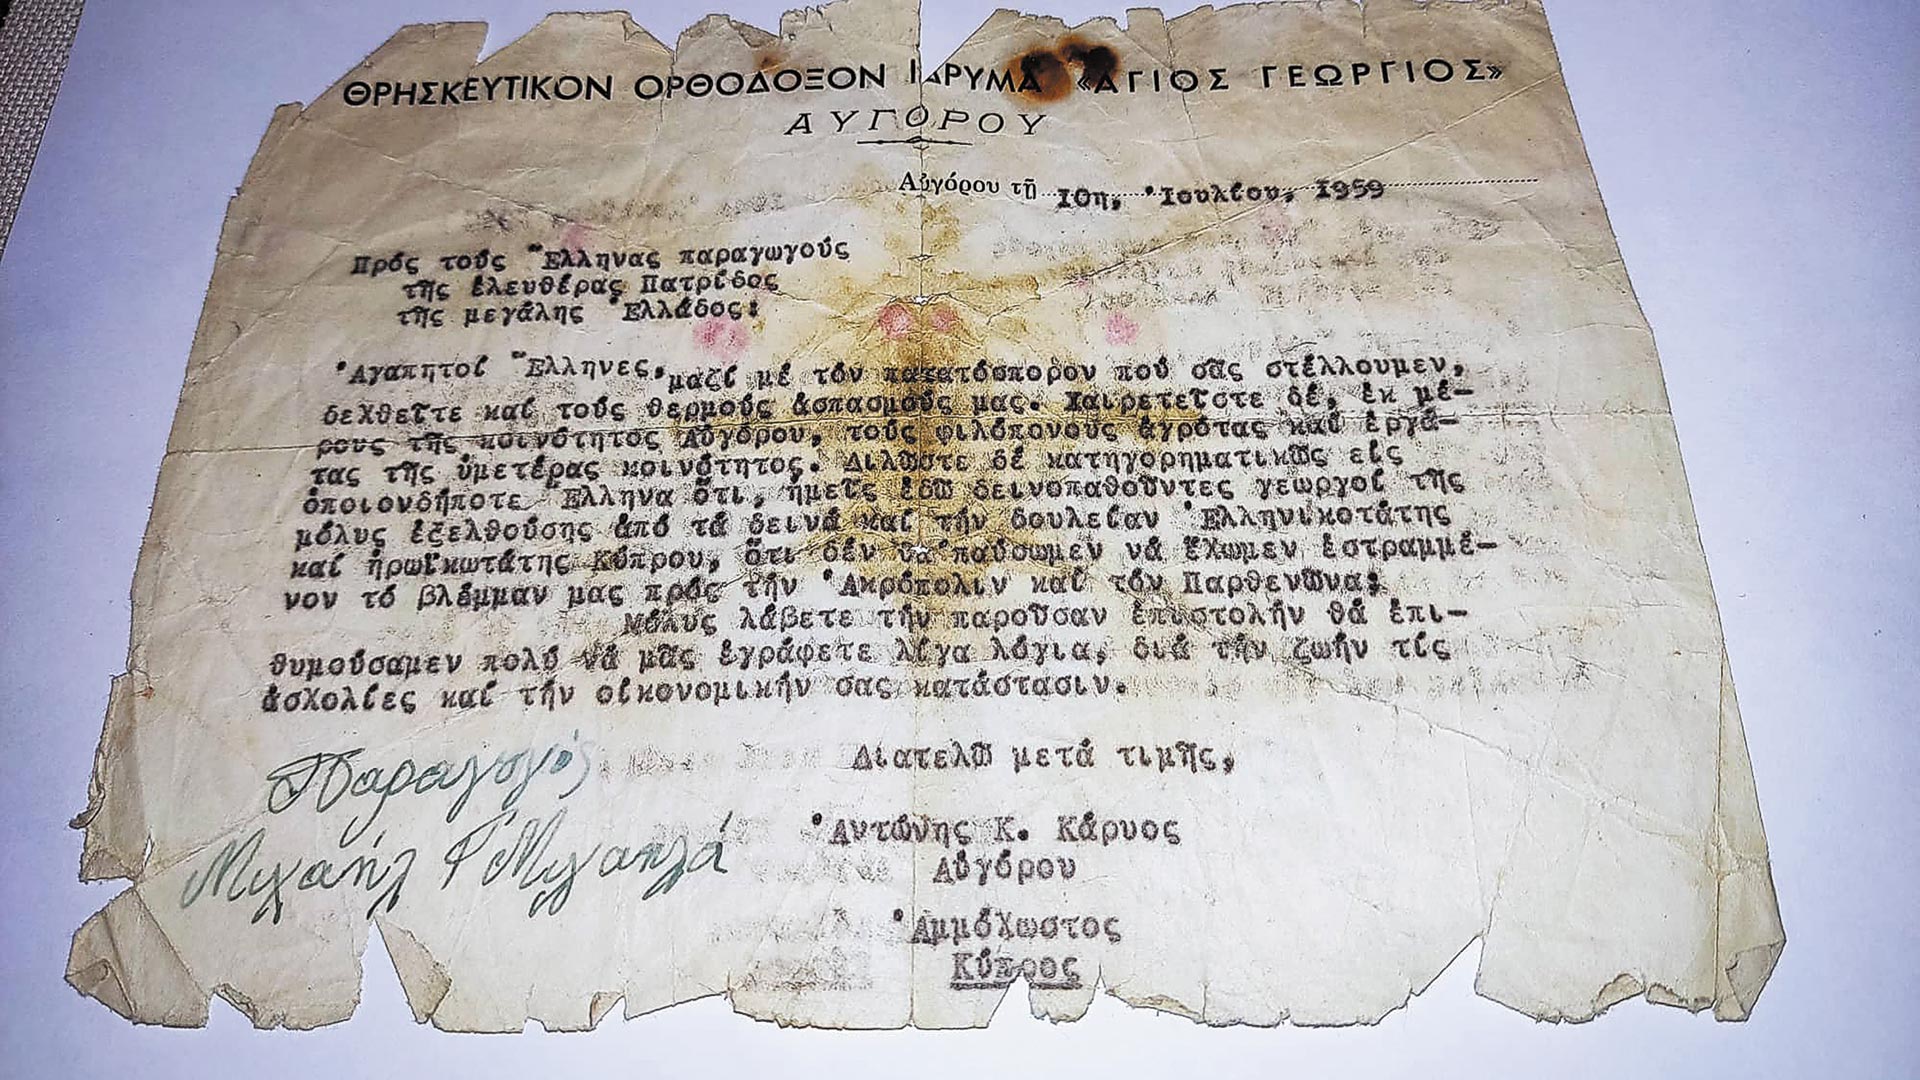 ΘΡΗΣΚΕΥΤΙΚΟΝ ΟΡΘΟΔΟΞΟΝ ΙΔΡΥΜΑ «ΑΓΙΟΣ ΓΕΩΡΓΙΟΣ»
ΑΥΓΟΡΟΥ
Αὐγόρου τῇ 10η, Ἰουλίου, 1959
Πρός τούς Ἕλληνας παραγωγούς
τῆς ἐλευθέρας Πατρίδος
τῆς μεγάλης Ἑλλάδος:
Ἀγαπητοί Ἕλληνες, μαζί μέ τόν πατατόσπορον πού σᾶς στέλλουμεν,
δεχθεῖτε καί τούς θερμούς ἀσπασμούς μας. Χαιρετεῖστε δέ, ἐκ μέ-
ρους τῆς κοινότητος Αὐγόρου, τούς φιλόπονους ἀγρότας καί ἐργά-
τας τῆς ὑμετέρας κοινότητος. Διλῶστε δέ κατηγορηματικῶς εἰς
ὁποιονδήποτε Ἕλληνα ὅτι, ἡμεῖς ἐδῶ δεινοπαθοῦντες γεωργοί τῆς
μόλυς ἐξελθούσης ἀπό τά δεινά καί τήν δουλείαν Ἑλληνικοτάτης
καί ἡρωϊκωτάτης Κύπρου, ὅτι δέν θά παύσωμεν νά ἔχωμεν ἐστραμμέ-
νον τό βλέμμαν μας πρός τήν Ἀκρόπολιν καί τόν Παρθενῶνα;
Μόλυς λάβετε τήν παροῦσαν ἐπιστολήν θά ἐπι-
θυμούσαμεν πολύ νά μᾶς ἐγράφετε λίγα λόγια, διά τήν ζωήν τίς
ἀσχολίες καί τήν οἰκονομικήν σας κατάστασιν.
Διατελῶ μετά τιμῆς,
Παραγωγός
Ἀντώνης Κ. Κάρυος
Μιχαήλ
Αὐγόρου
Ἀμμόχωστος
Κύπρος